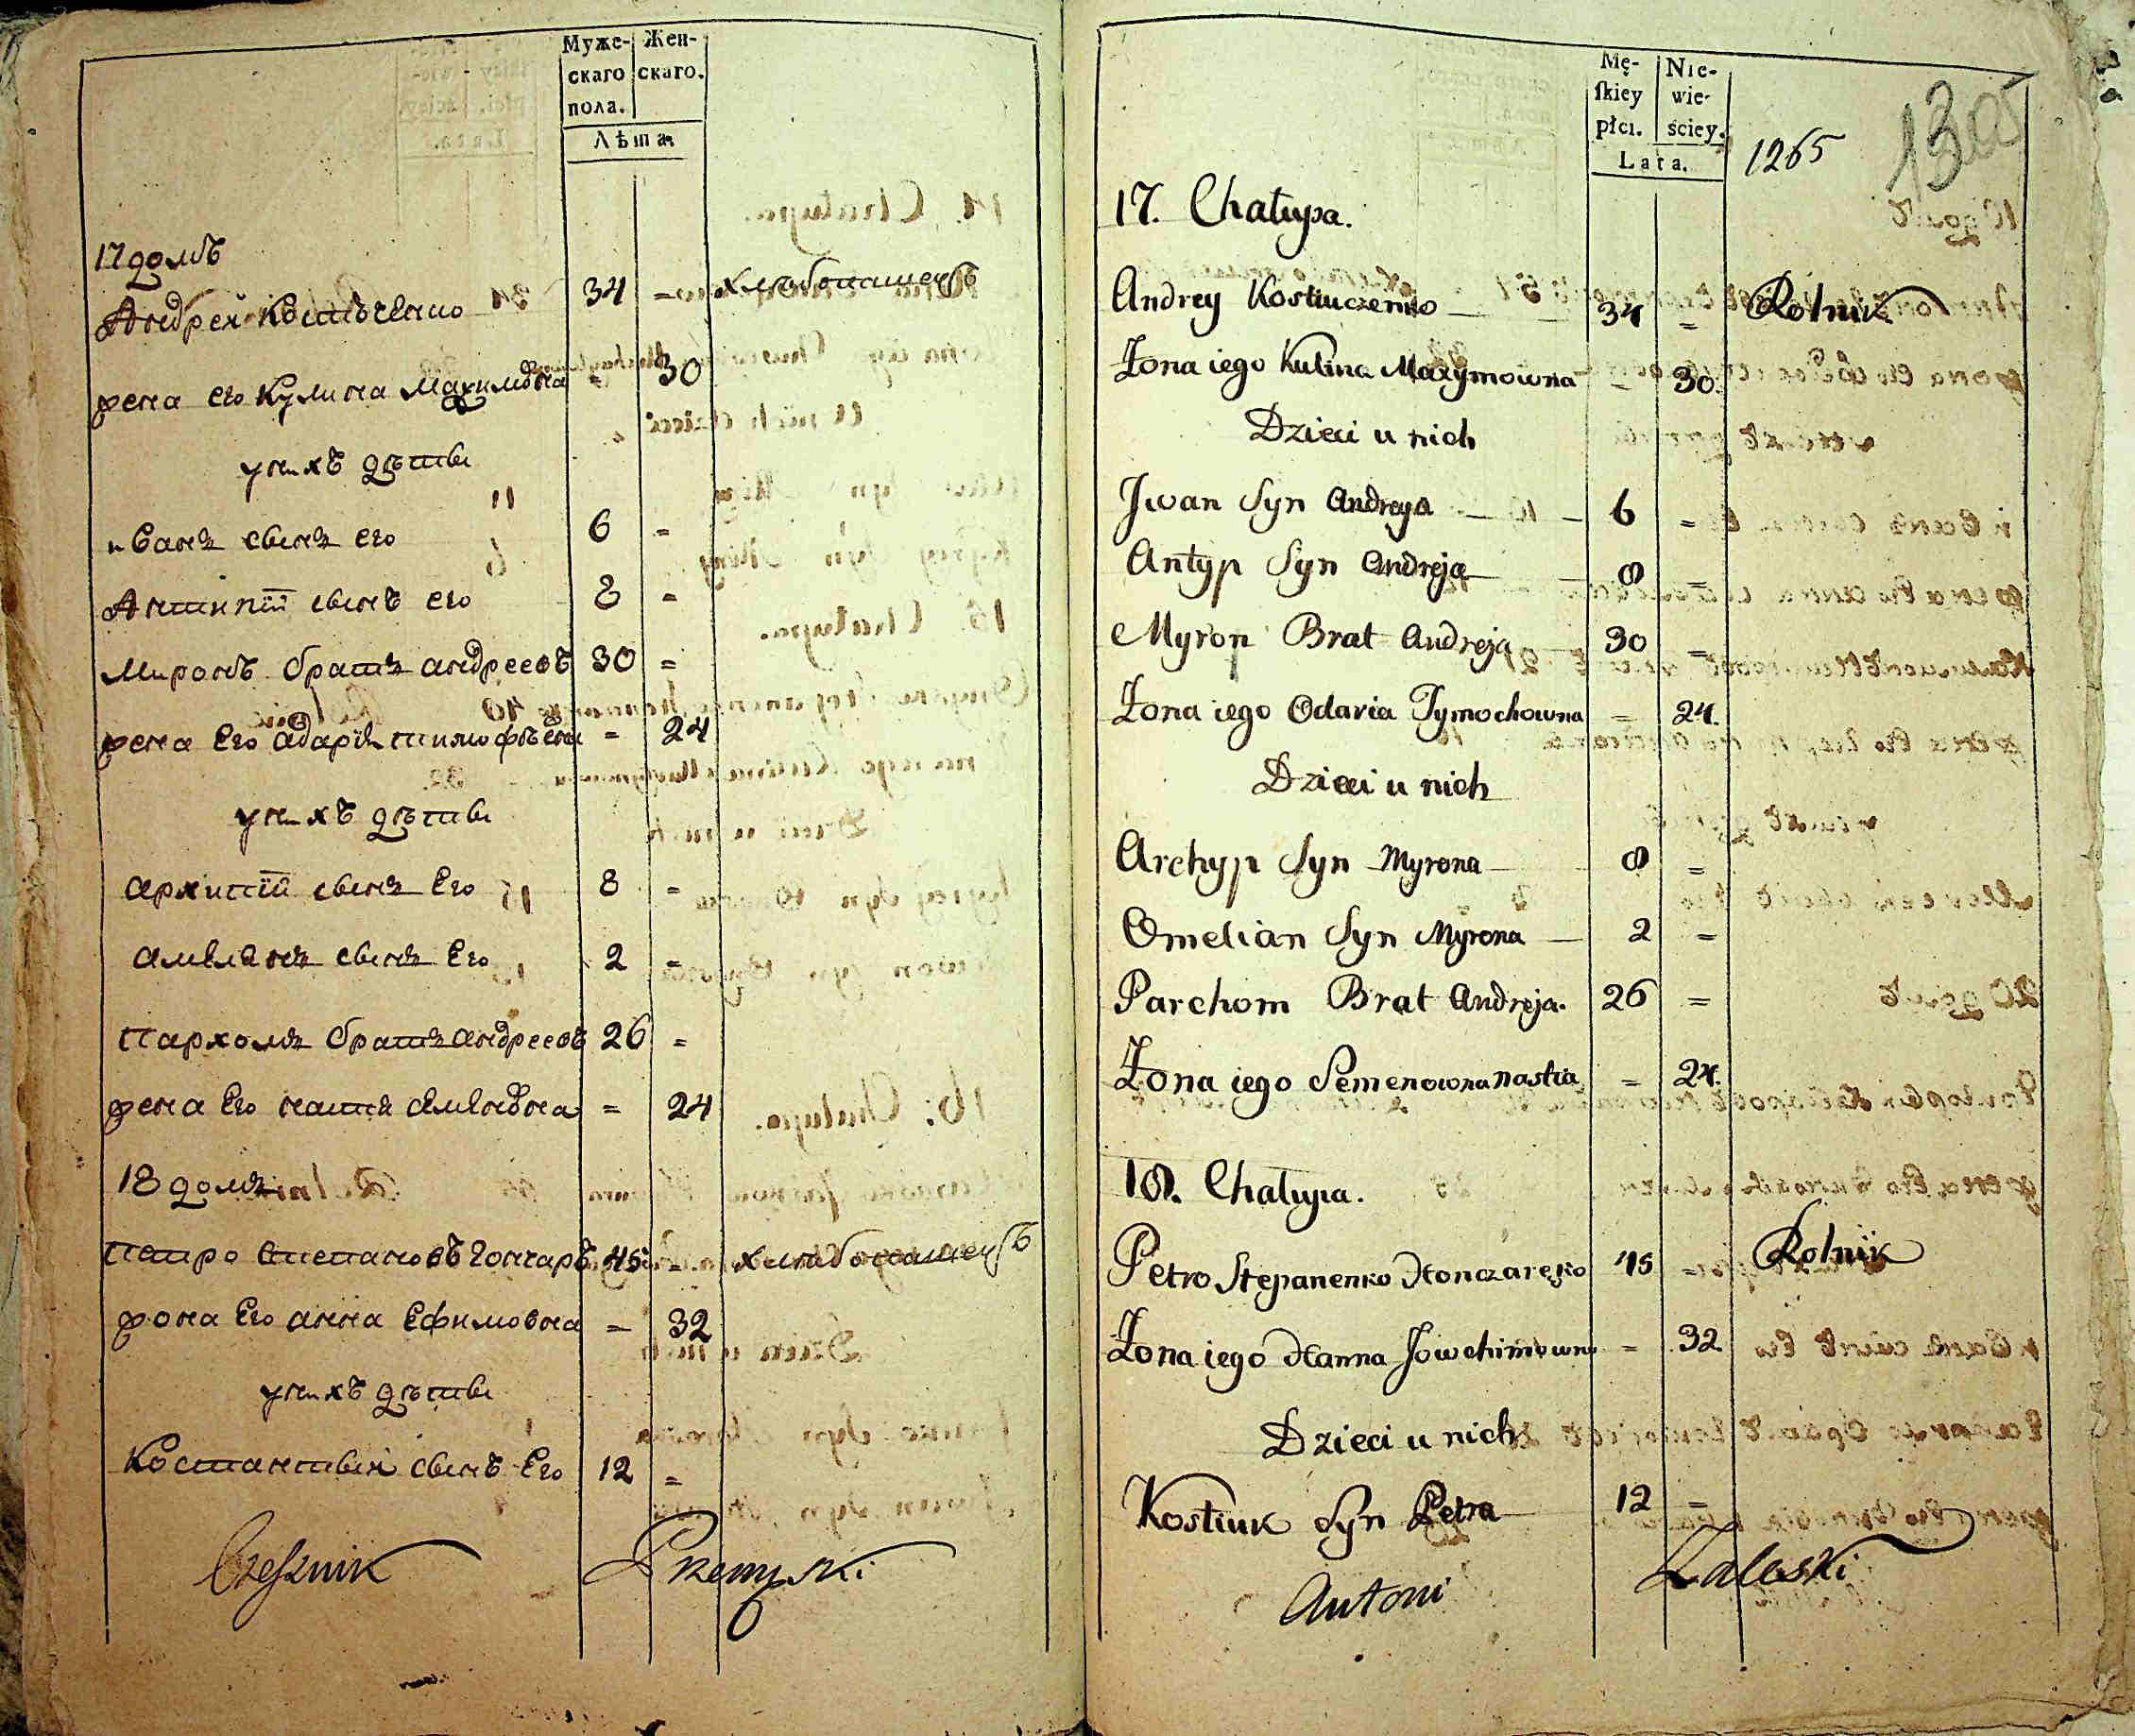 Муже- Жен-
скаго скаго.
пола.
Лѣта
17 домъ
Андрей Костюченко 34 = хлебопашецъ
жена его Кулина Махимовна = 30
у нихъ дѣти
иванъ сынъ его 6 =
Антипій сынъ его 8 =
Миронъ братъ андреевъ 30 =
жена Его адарія тимофѣевна = 24
у нихъ дѣти
архипій сынъ Его 8 =
амелянъ сынъ Его 2 =
Пархомъ братъ андреевъ 26 =
жена Его настя семеновна = 24
18 домъ
Петро Степановъ Гончаръ 45 = хлебопашецъ
жона Его анна Ефимовна = 32
у нихъ дѣти
Костантын сынъ Его 12 =
Czesznik Przemyski
Mę- Nie-
skiey wie-
płci. sciey.
Lata.
1265
1305
17. Chałupa.
Andrey Kostiuczenko 34 = Rolnik
Żona iego Kulina Maxymowna = 30.
Dzieci u nich
Jwan Syn Andreya 6 =
Antyp Syn Andreja 8 =
Myron Brat Andreja 30 =
Żona iego Odaria Tymochowna = 24.
Dzieci u nich
Archyp Syn Myrona 8 =
Omelian Syn Myrona 2 =
Parchom Brat Andreja. 26 =
Żona iego Semenowna nastia = 24.
18. Chałupa.
Petro Stepanenko Honczarenko 45 = Rolnik
Żona iego Hanna Jowchimowna = 32
Dzieci u nich
Kostiuk Syn Petra 12 =
Antoni Zaleski